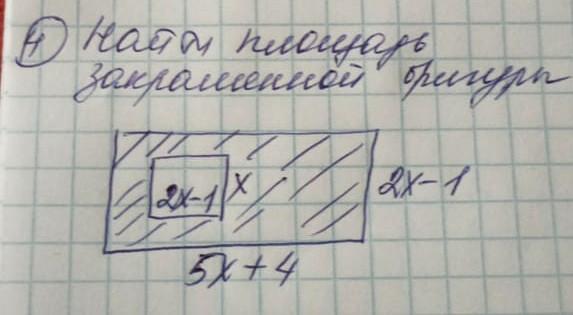 4) Найти площадь
закрашенной фигуры
2x-1 x 2x-1
5x+4